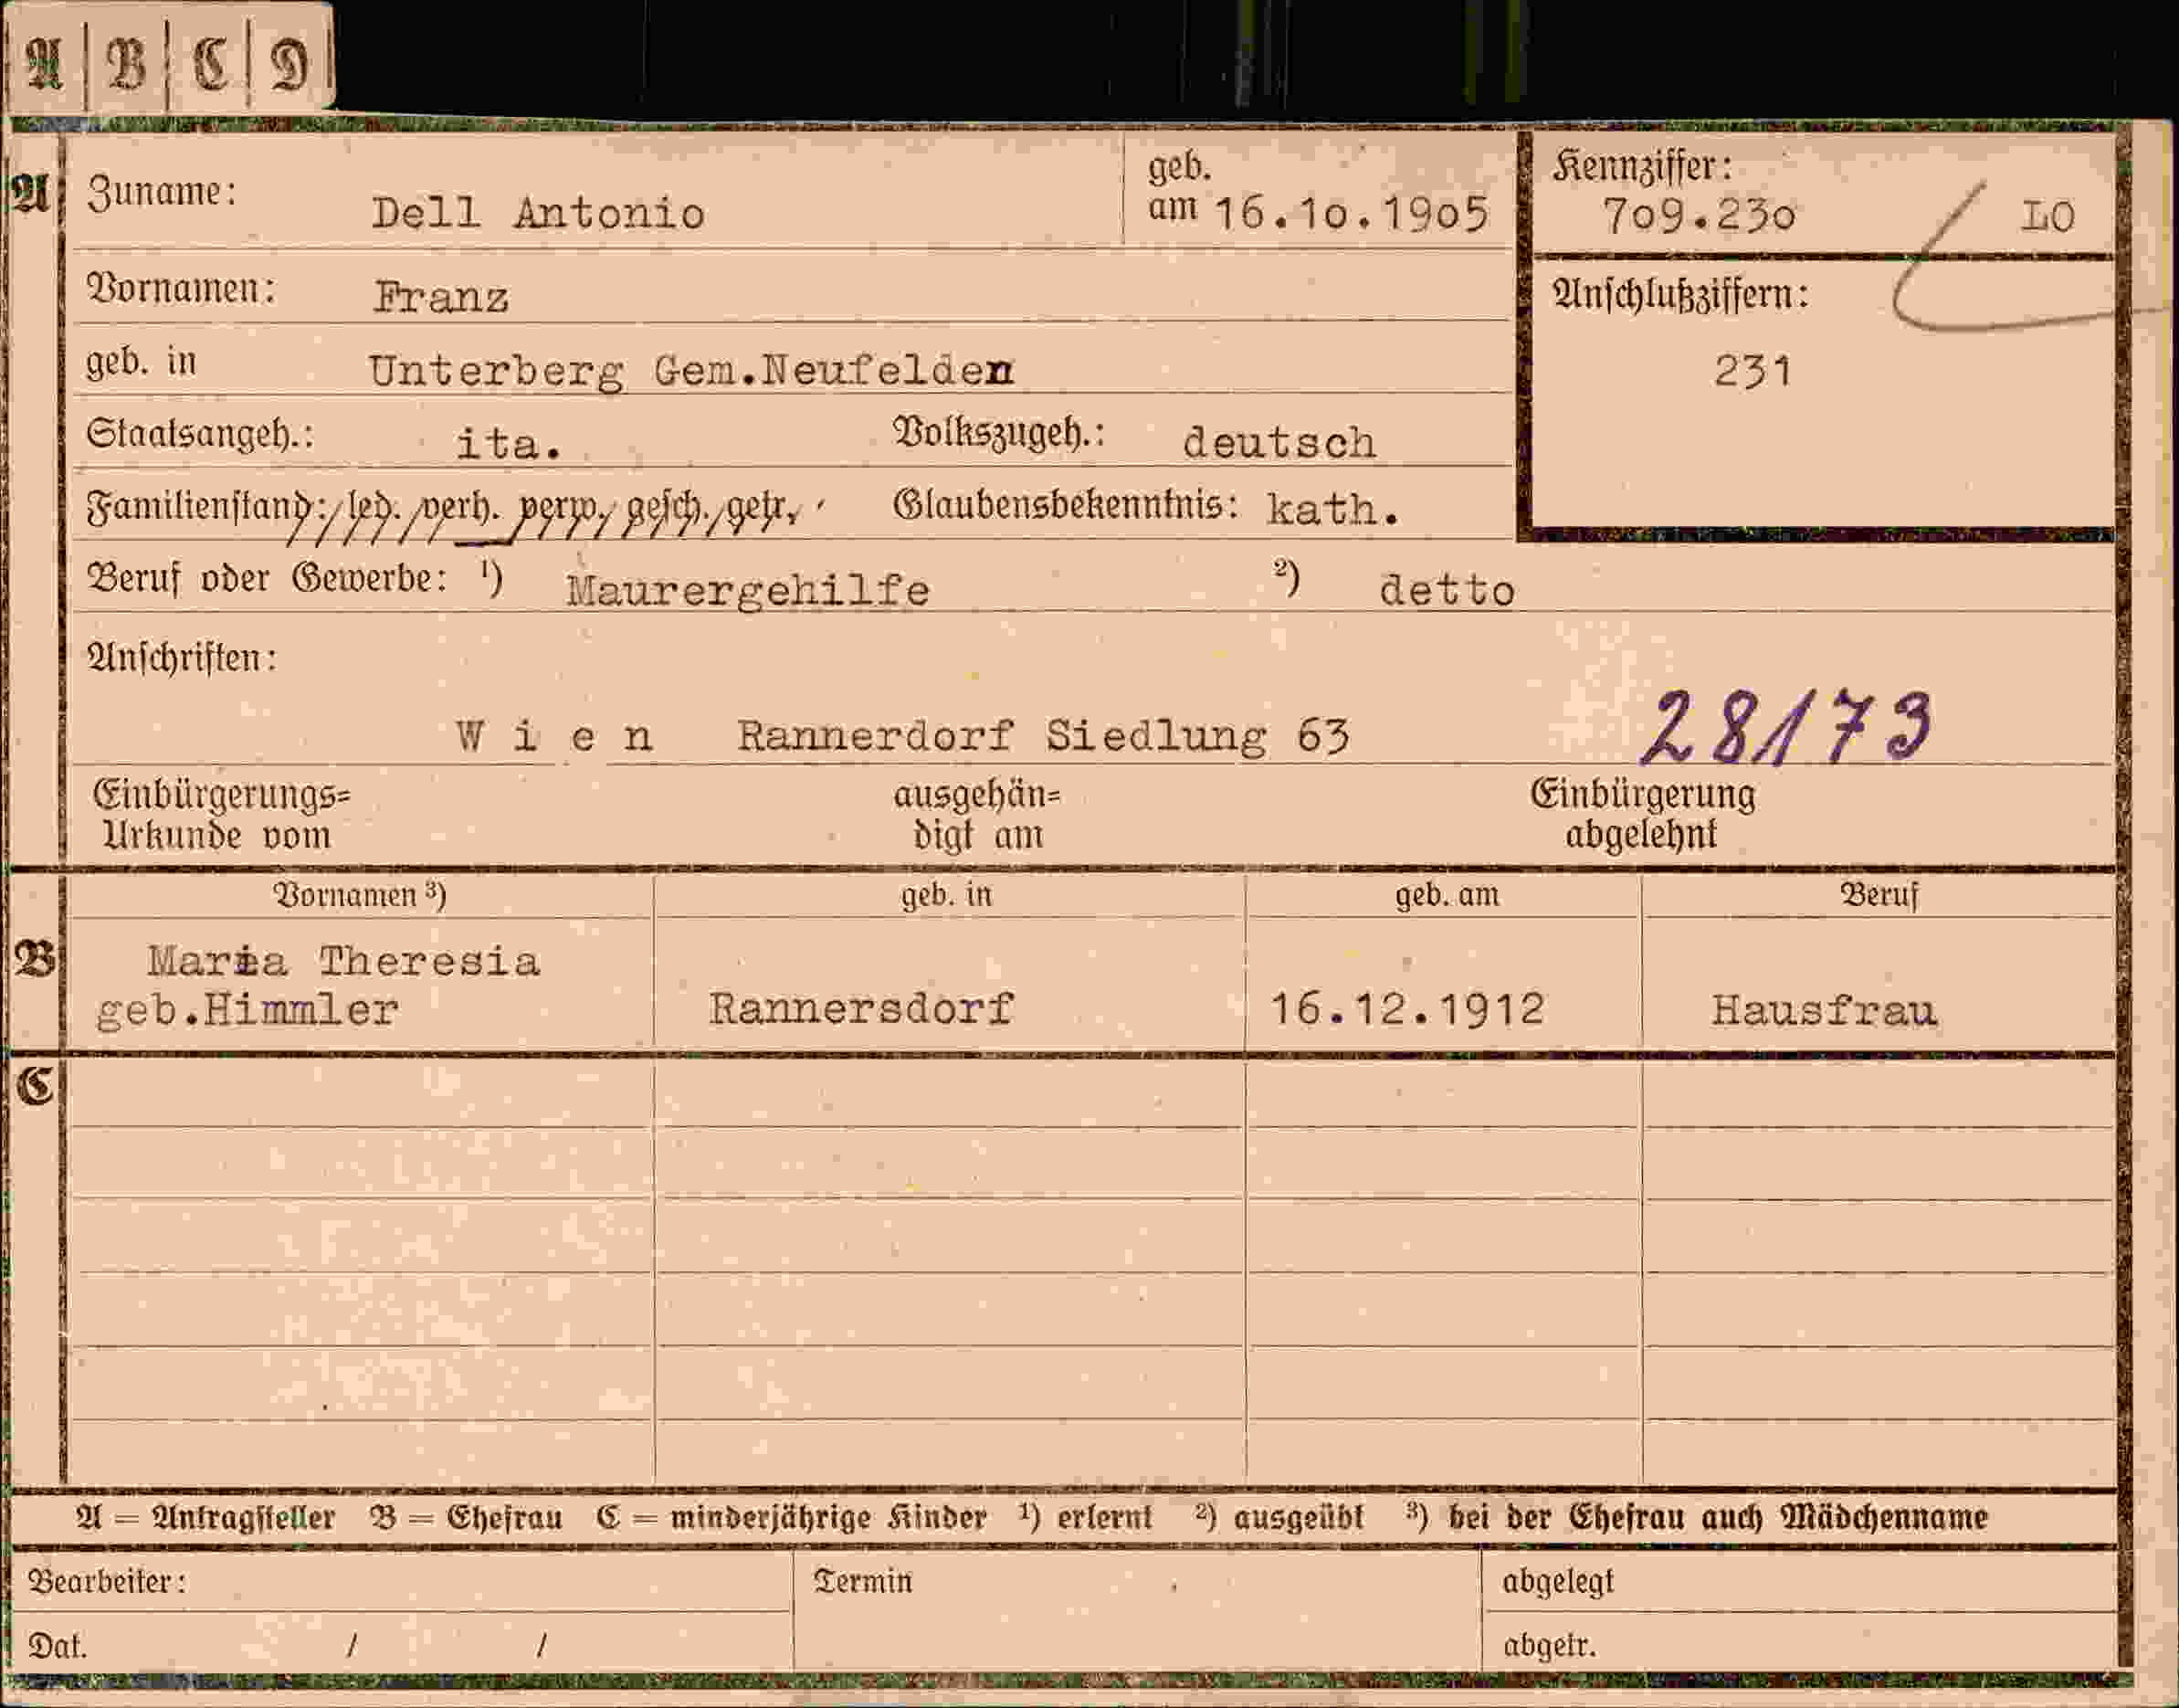 A | B | C | D
A Zuname: Dell Antonio geb. am 16.10.1905 Kennziffer: 709.230 LO
Vornamen: Franz Anschlußziffern:
geb. in Unterberg Gem.Neufelden 231
Staatsangeh.: ita. Volkszugeh.: deutsch
Familienstand: led. verh. verw. gesch. getr. Glaubensbekenntnis: kath.
Beruf oder Gewerbe: ¹) Maurergehilfe ²) detto
Anschriften:
W i e n Rannerdorf Siedlung 63 28173
Einbürgerungs= ausgehän= Einbürgerung
Urkunde vom digt am abgelehnt
Vornamen ³) geb. in geb. am Beruf
B Maria Theresia
geb.Himmler Rannersdorf 16.12.1912 Hausfrau
C
A = Antragsteller B = Ehefrau C = minderjährige Kinder ¹) erlernt ²) ausgeübt ³) bei der Ehefrau auch Mädchenname
Bearbeiter: Termin abgelegt
Dat. / / abgetr.